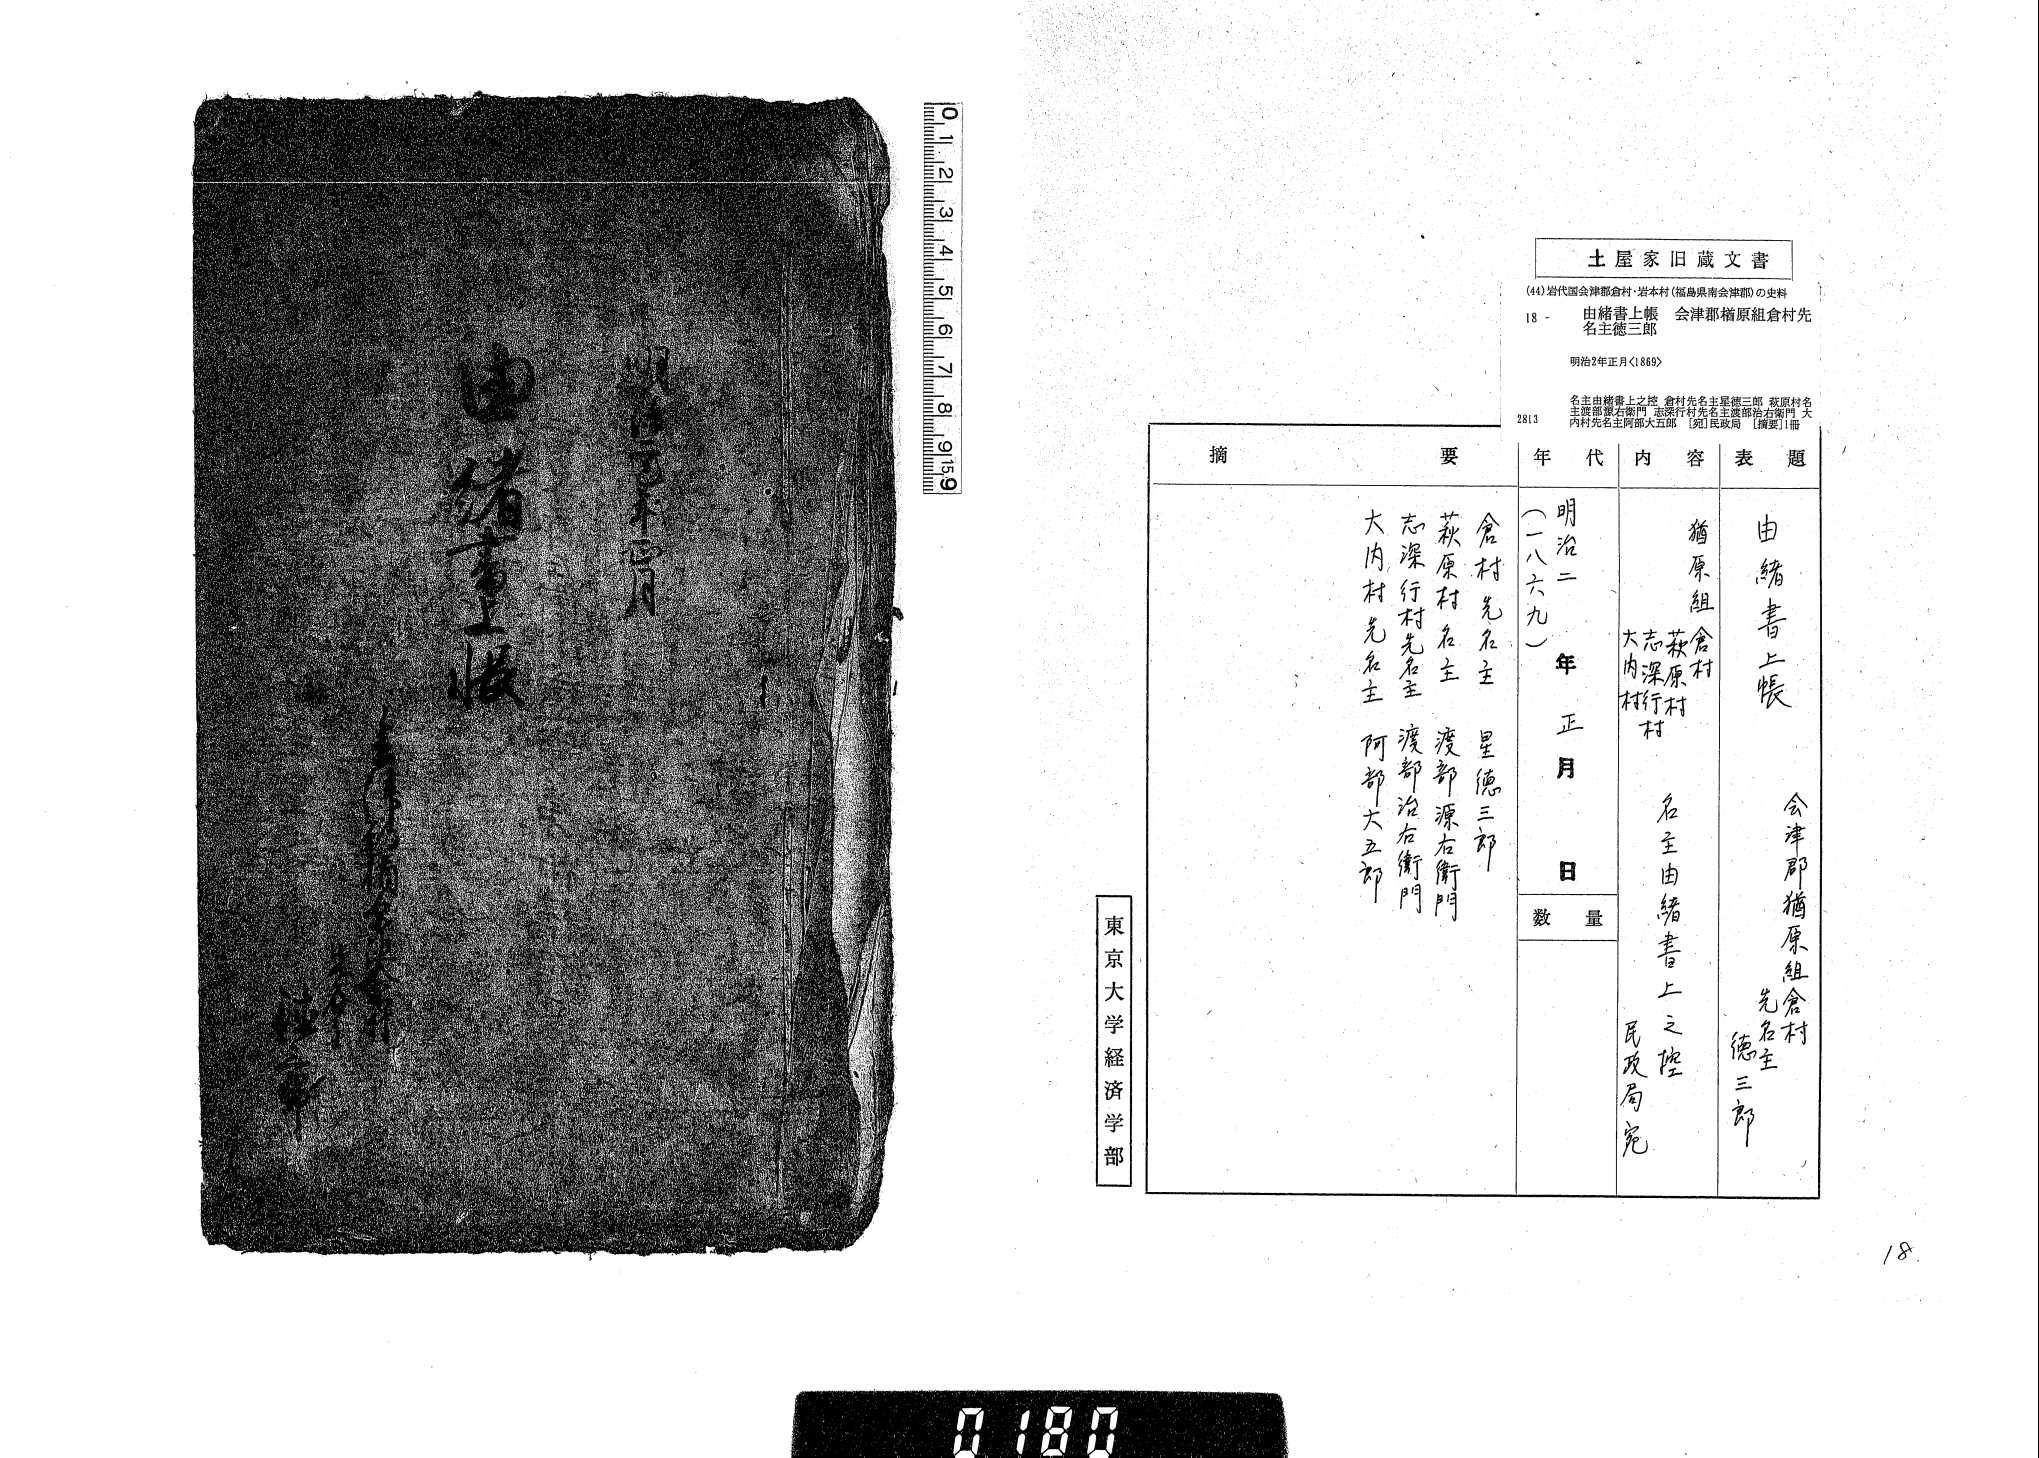 土屋家旧蔵文書
(44)岩代国会津郡倉村・岩本村(福島県南会津郡)の史料
18 - 由緒書上帳 会津郡楢原組倉村先
名主徳三郎
明治2年正月〈1869〉
名主由緒書上之控 倉村先名主星徳三郎 萩原村名
主渡部源右衛門 志深行村先名主渡部治右衛門 大
2813 内村先名主阿部大五郎 [宛]民政局 [摘要]1冊
表題
由緒書上帳
会津郡楢原組倉村
先名主
徳三郎
内容
楢原組
倉村
萩原村
志深行村
大内村
名主由緒書上之控
民政局宛
年代
明治二年正月日
(一八六九)
数量
摘要
倉村先名主 星徳三郎
萩原村名主 渡部源右衛門
志深行村先名主 渡部治右衛門
大内村先名主 阿部大五郎
東京大学経済学部
18
0 1 2 3 4 5 6 7 8 9 15.9
明治二巳年正月
由緒書上帳
徳三郎
0180